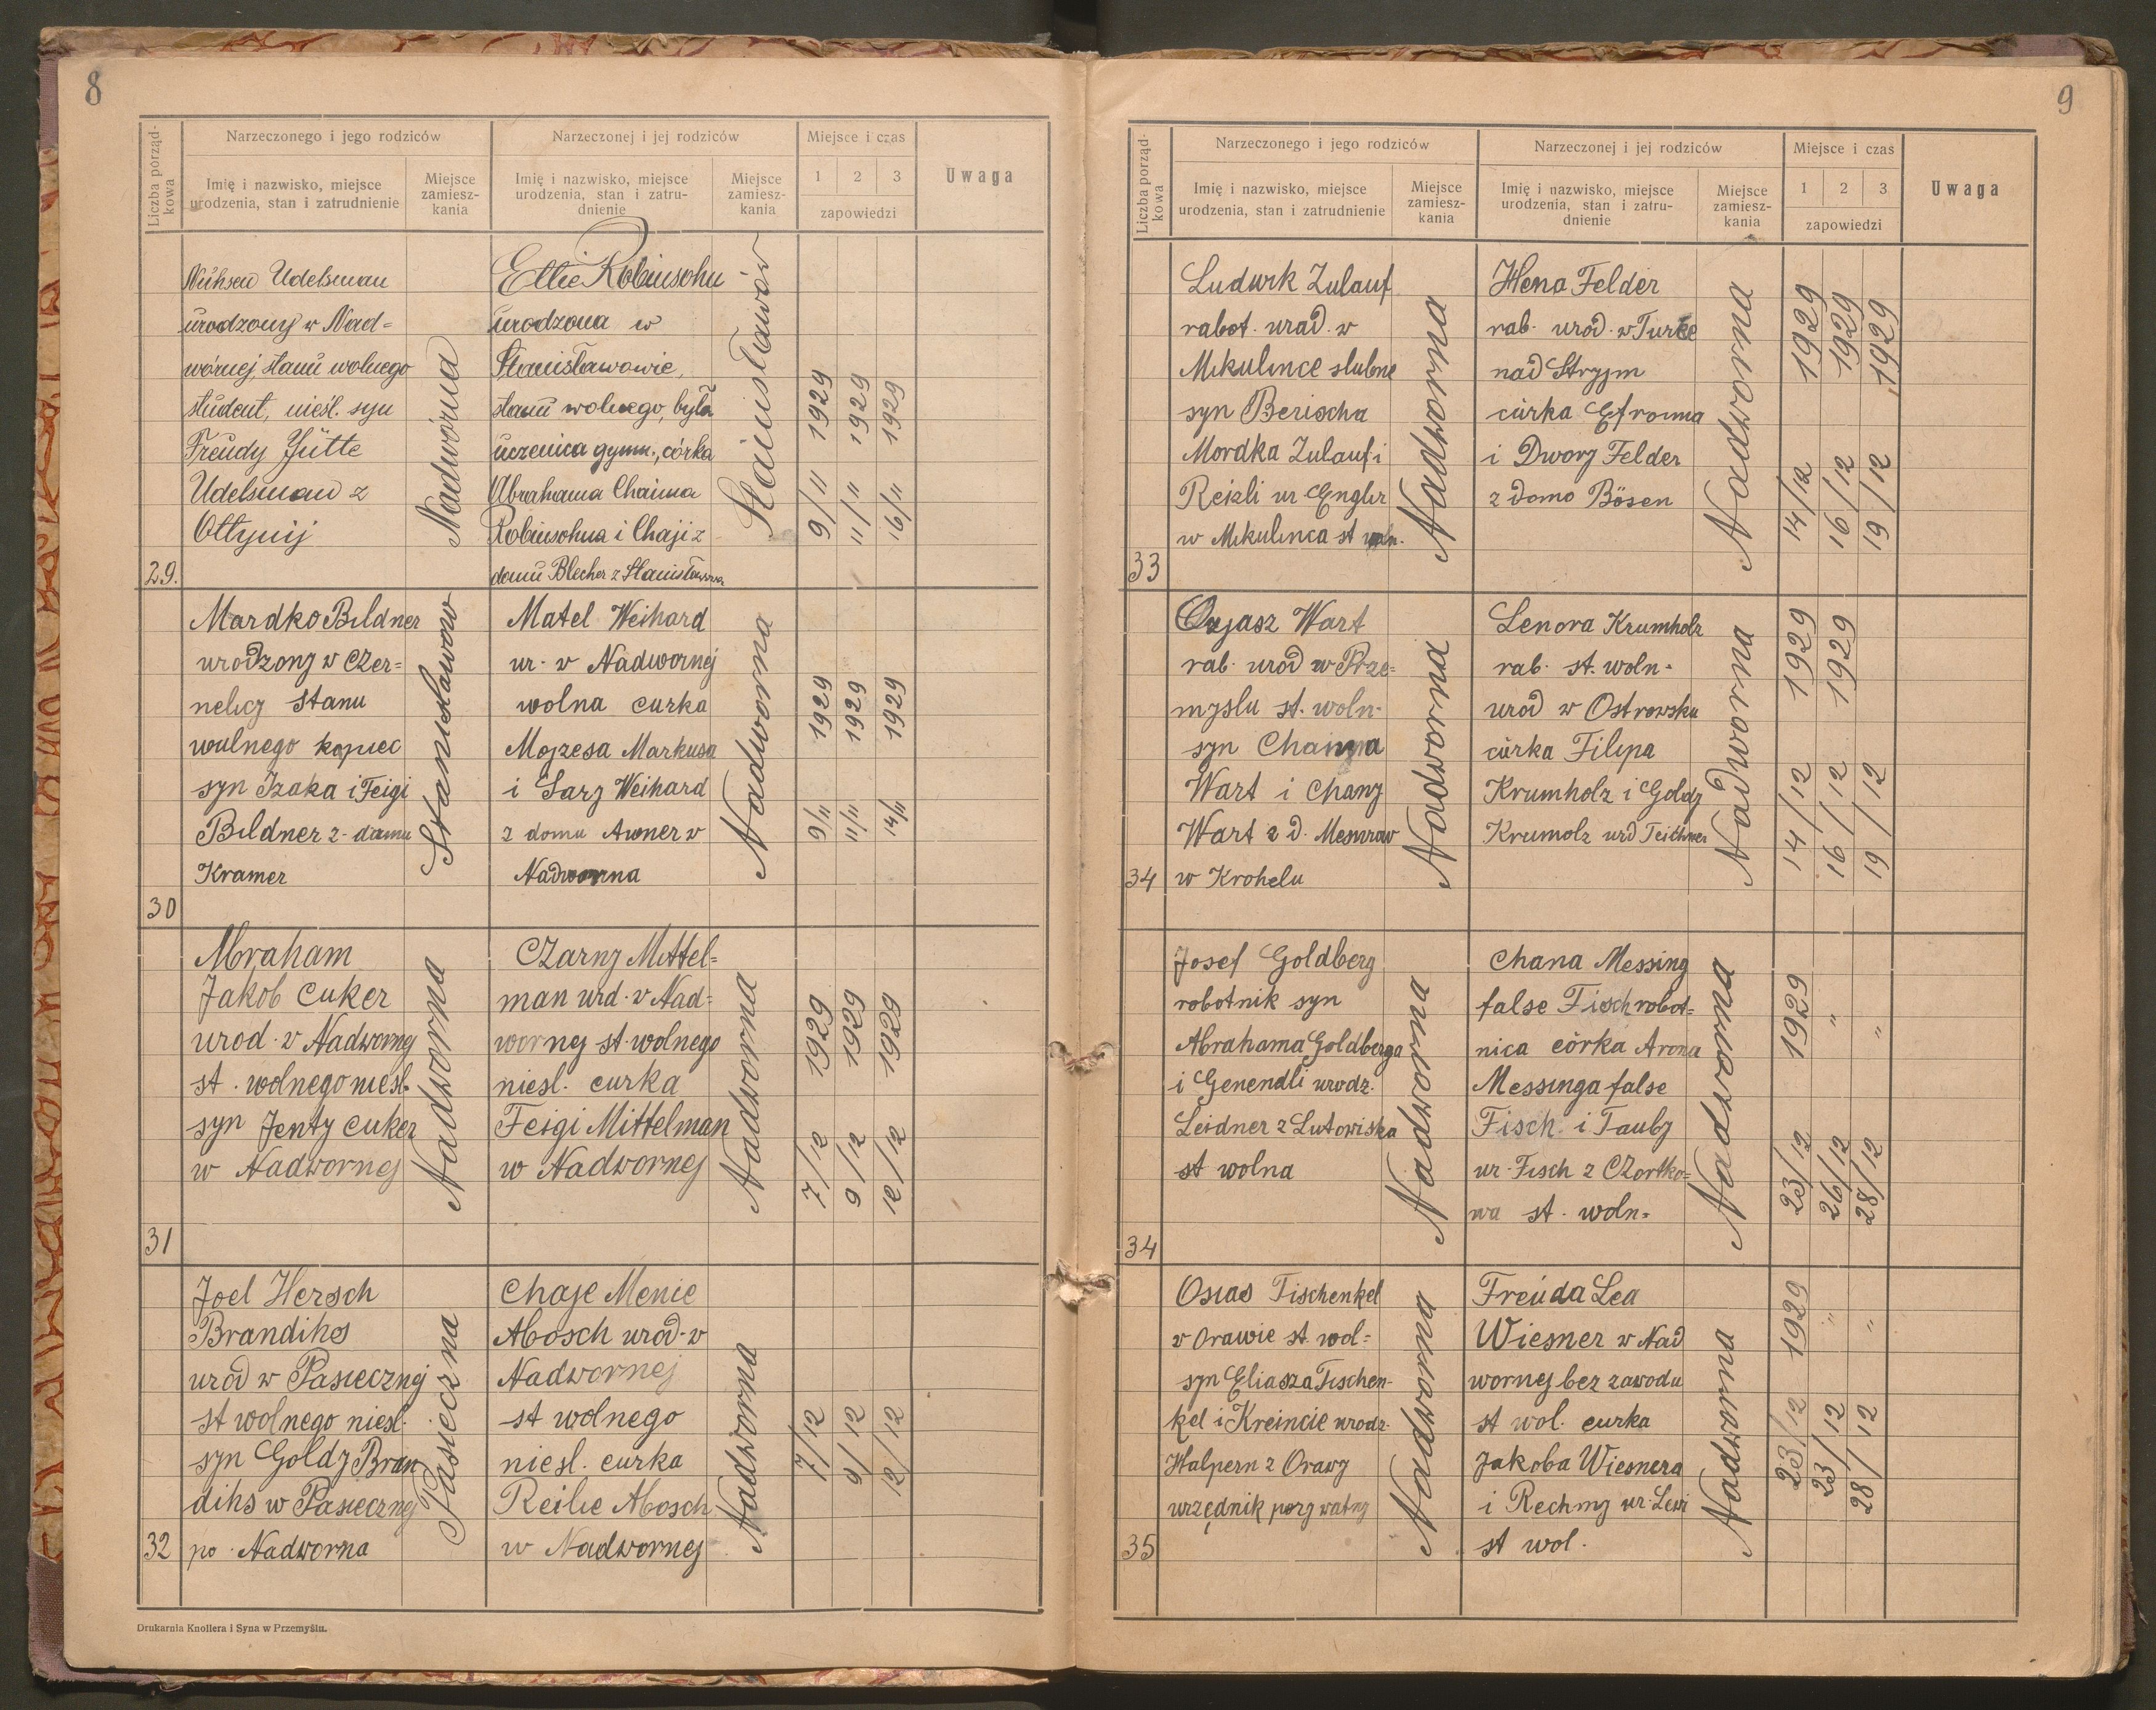 8
Liczba porząd-
kowa
Narzeczonego i jego rodziców
Narzeczonej i jej rodziców
Miejsce i czas
Imię i nazwisko, miejsce
urodzenia, stan i zatrudnienie
Miejsce
zamiesz-
kania
Imię i nazwisko, miejsce
urodzenia, stan i zatru-
dnienie
Miejsce
zamiesz-
kania
1 2 3
zapowiedzi
Uwaga
29.
Nuhsen Udelsman
urodzony w Nad=
wórnej, stanu wolnego
student, nieśl. syn
Freudy Jütte
Udelsman z
Ottynij
Nadwórna
Ettie Robinsohn
urodzona w
Stanisławowie,
stanu wolnego, była
uczenica gymn., córka
Abrahama Chaima
Robinsohna i Chaji z
domu Blecher z Stanisławowa
Stanisławów
9/11 1929
11/11 1929
16/11 1929
30
Mardko Bildner
urodzony w Czer=
nelicy stanu
wulnego kopiec
syn Izaka i Feigi
Bildner z- domu
Kramer
Stanisławow
Matel Weihard
ur- w Nadwornej
wolna curka
Mojzesa Markusa
i Sary Weihard
z domu Awner w
Nadworna
Nadworna
9/11 1929
11/11 1929
14/11 1929
31
Abraham
Jakob Cuker
urod- w Nadwornej
st. wolnego niesl.
syn Jenty Cuker
w Nadwornej
Nadworna
Czarny Mittel=
man urd- w Nad=
wornej st- wolnego
niesl. curka
Feigi Mittelman
w Nadwornej
Nadworna
7/12 1929
9/12 1929
12/12 1929
32
Joel Hersch
Brandihs
urod w Pasiecznej
st wolnego niesl-
syn Goldy Bran
dihs w Pasiecznej
po- Nadworna
Pasieczna
Chaje Menie
Abosch urod- w
Nadwornej
st wolnego
niesl. curka
Reilie Abosch
w Nadwornej
Nadworna
7/12
9/12
12/12
Drukarnia Knollera i Syna w Przemyślu.
9
Liczba porząd-
kowa
Narzeczonego i jego rodziców
Narzeczonej i jej rodziców
Miejsce i czas
Imię i nazwisko, miejsce
urodzenia, stan i zatrudnienie
Miejsce
zamiesz-
kania
Imię i nazwisko, miejsce
urodzenia, stan i zatru-
dnienie
Miejsce
zamiesz-
kania
1 2 3
zapowiedzi
Uwaga
33
Ludwik Zulauf
rabot. urad. w
Mikulince slubne
syn Berischa
Mordka Zulauf i
Reizli ur Engler
w Mikulinca st woln.
Nadworna
Hena Felder
rab- urod- w Turce
nad Stryjm
curka Efroima
i Dwory Felder
z domo Bösen
Nadworna
14/12 1929
16/12 1929
19/12 1929
34
Ozjasz Wart
rab- urod w Prze-
myslu st- woln-
syn Chaima
Wart i Chany
Wart z d-
w Krohelu
Nadworna
Lenora Krumholz
rab- st. woln-
urod w Ostrowsku
curka Filipa
Krumholz i Goldy
Krumolz urd Teichner
Nadworna
14/12 1929
16/12 1929
19/12
34
Josef Goldberg
robotnik syn
Abrahama Goldberga
i Genendli urodz-
Leidner z Lutowiska
st wolna
Nadworna
Chana Messing
false Fisch robot=
nica córka Arona
Messinga false
Fisch- i Tauby
ur- Fisch z Czortko=
wa st- woln-
Nadworna
23/12 1929
26/12 "
28/12 "
35
Osias Tischenkel
w Orawie st wol=
syn Eliasza Tischen-
kel i Kreincie urodz-
Halpern z Orawy
urzędnik porywatny
Nadworna
Freida Lea
Wiesner w Nad
wornej bez zawodu
st wol. curka
Jakoba Wiesnera
i Rechmy ur- Lewi
st wol-
Nadworna
23/12 1929
23/12 "
28/12 "